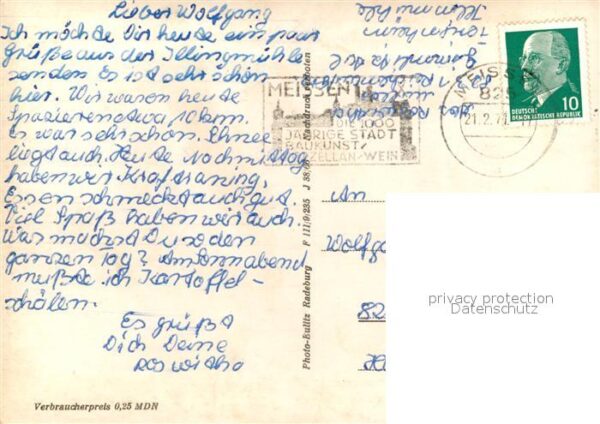 Lieber Wolfgang
Ich möchte Dir heute ein paar
Grüße aus der Illingmühle
senden. Es ist sehr schön
hier. Wir waren heute
Spazieren etwa 10 km.
Es war sehr schön. Schnee
liegt auch. Heute Nachmittag
haben wir Krafttraning,
Essen schmeckt auch gut.
Viel Spaß haben wir auch.
Was machst Du so den
ganzen Tag? Am Sonnabend
mußte ich Kartoffel-
schälen.
Es grüßt
Dich Deine
Roswitha
Verbraucherpreis 0,25 MDN
Photo-Bulitz Radeburg F III/9/235 J 38
verboten
MEISSEN
DIE 1000
JÄHRIGE STADT
BAUKUNST/
PORZELLAN/WEIN
MEISSEN
825
21.2.7
10
DEUTSCHE
DEMOKRATISCHE REPUBLIK
An
Wolfga
82
privacy protection
Datenschutz